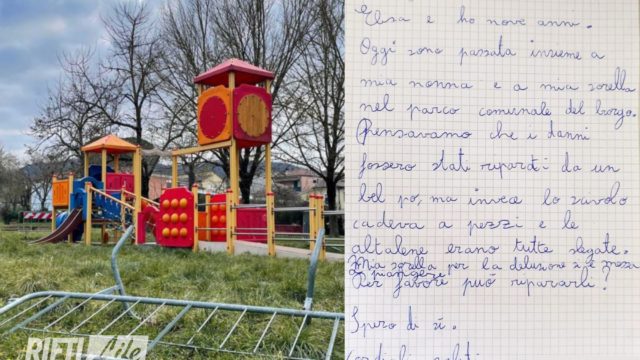 Elsa e ho nove anni.
Oggi sono passata insieme a
mia nonna e a mia sorella
nel parco comunale del borgo.
Pensavamo che i danni
fossero stati riparati da un
bel po, ma invece lo scivolo
cadeva a pezzi e le
altalene erano tutte slegate.
Mia sorella per la delusione si è messa
a piangere.
Per favore può ripararli?
Spero di sì.
RIETI life